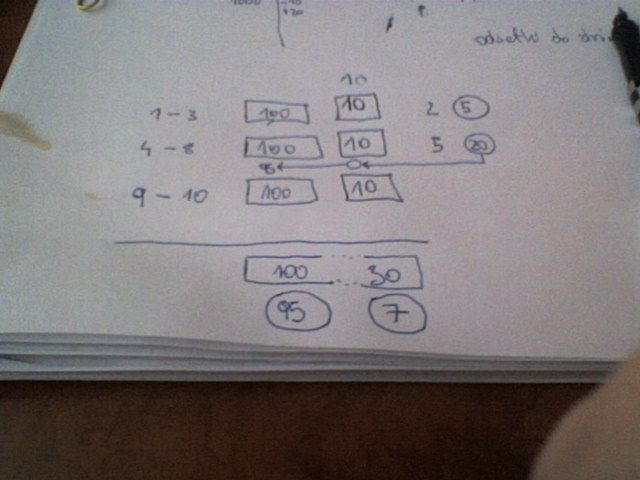 1000 -10
+20
odsetki do
10
1 - 3 100 10 2 5
4 - 8 100 10 5 20
95 0
9 - 10 100 10
100 30
95 7